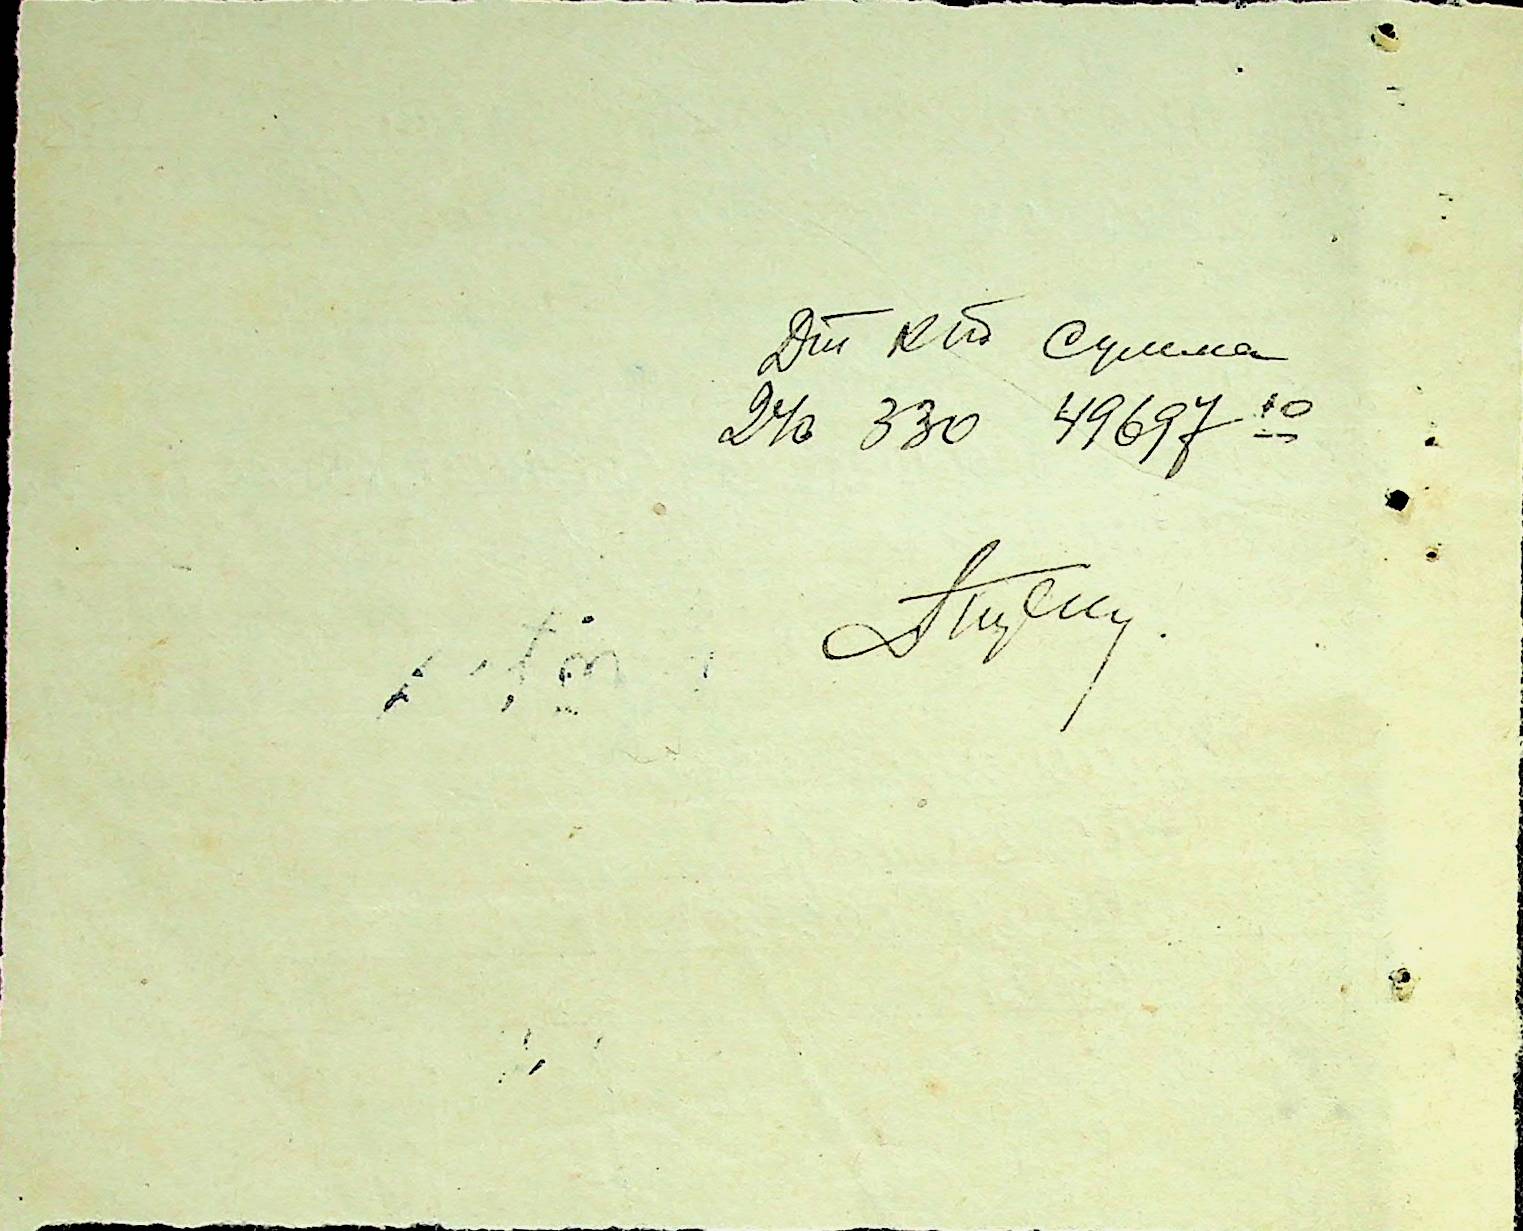 Дт Кт Сумма
240 330 49697 10